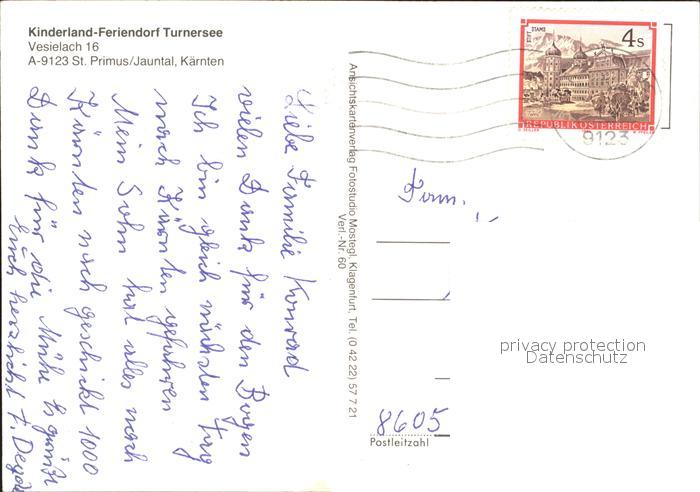 Kinderland-Feriendorf Turnersee
Vesielach 16
A-9123 St. Primus/Jauntal, Kärnten
Liebe Familie Konrad
vielen Dank für den Bogen
Ich bin gleich nächsten Tag
nach Kärnten gefahren
Mein Sohn hat alles nach
Kärnten nachgeschickt 1000
Dank für die Mühe Es grüßt
Euch herzlichst F.
Ansichtskartenverlag Fotostudio Mostegl, Klagenfurt, Tel. (0 42 22) 57 7 21
Verl.-Nr. 60
STIFT STAMS
4 S
REPUBLIK ÖSTERREICH
9123
Fam.
privacy protection
Datenschutz
8605
Postleitzahl